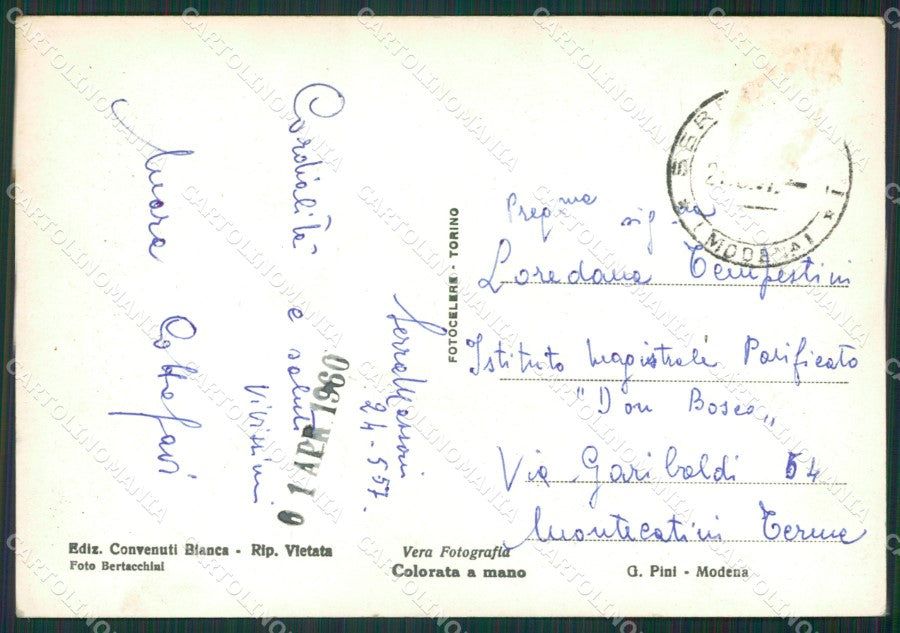 Preg.ma sig.na
Loredana Tempestini
Istituto Magistrale Parificato
"Don Bosco"
Via Garibaldi 54
Montecatini Terme
Serramazzoni
24-5-57.
Cordialità e saluti
vivissimi
Mara Cottafavi
6 1 APR 1960
SER
(MODENA)
FOTOCELERE - TORINO
Ediz. Convenuti Bianca - Rip. Vietata
Foto Bertacchini
Vera Fotografia
Colorata a mano
G. Pini - Modena
CARTOLINOMANIA